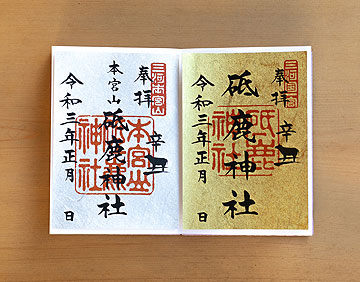 三河國一宮
奉拝
辛丑
砥鹿神社
砥鹿神社
令和三年正月 日
三河本宮山
奉拝
辛丑
本宮山
砥鹿神社
令和三年正月 日